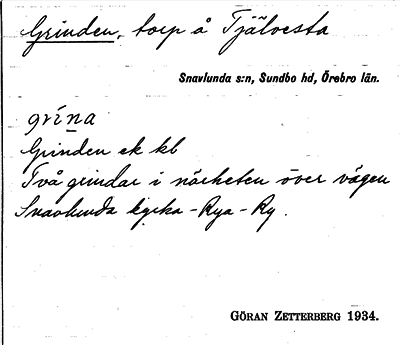 Grinden, torp å Tjälvesta
Snavlunda s:n, Sundbo hd, Örebro län.
grína
Grinden ek kl
Två grindar i närheten över vägen
Snavlunda kyrka - Rya - Ry.
GÖRAN ZETTERBERG 1934.